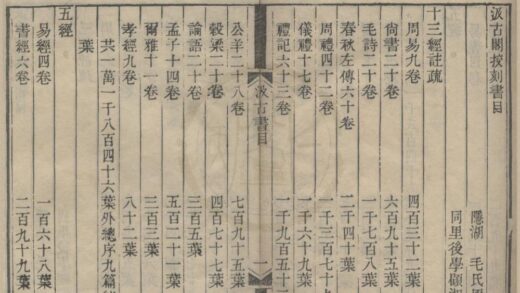 汲古閣挍刻書目
隱湖 毛氏
同里後學顧
十三經註疏
周易九卷 四百三十二葉
尙書二十卷 六百九十五葉
毛詩二十卷 一千七百八葉
春秋左傳六十卷 二千四十葉
周禮四十二卷 一千三百七十
儀禮十七卷 一千六十九葉
禮記六十三卷 一千九百五十
汲古書目 一
公羊二十八卷 七百九十五葉
穀梁二十卷 四百七十七葉
論語二十卷 三百五葉
孟子十四卷 五百二十一葉
爾雅十一卷 三百三葉
孝經九卷 八十二葉
共一萬一千八百四十六葉外總序九篇
葉
五經
易經四卷 一百六十八葉
書經六卷 二百九十九葉